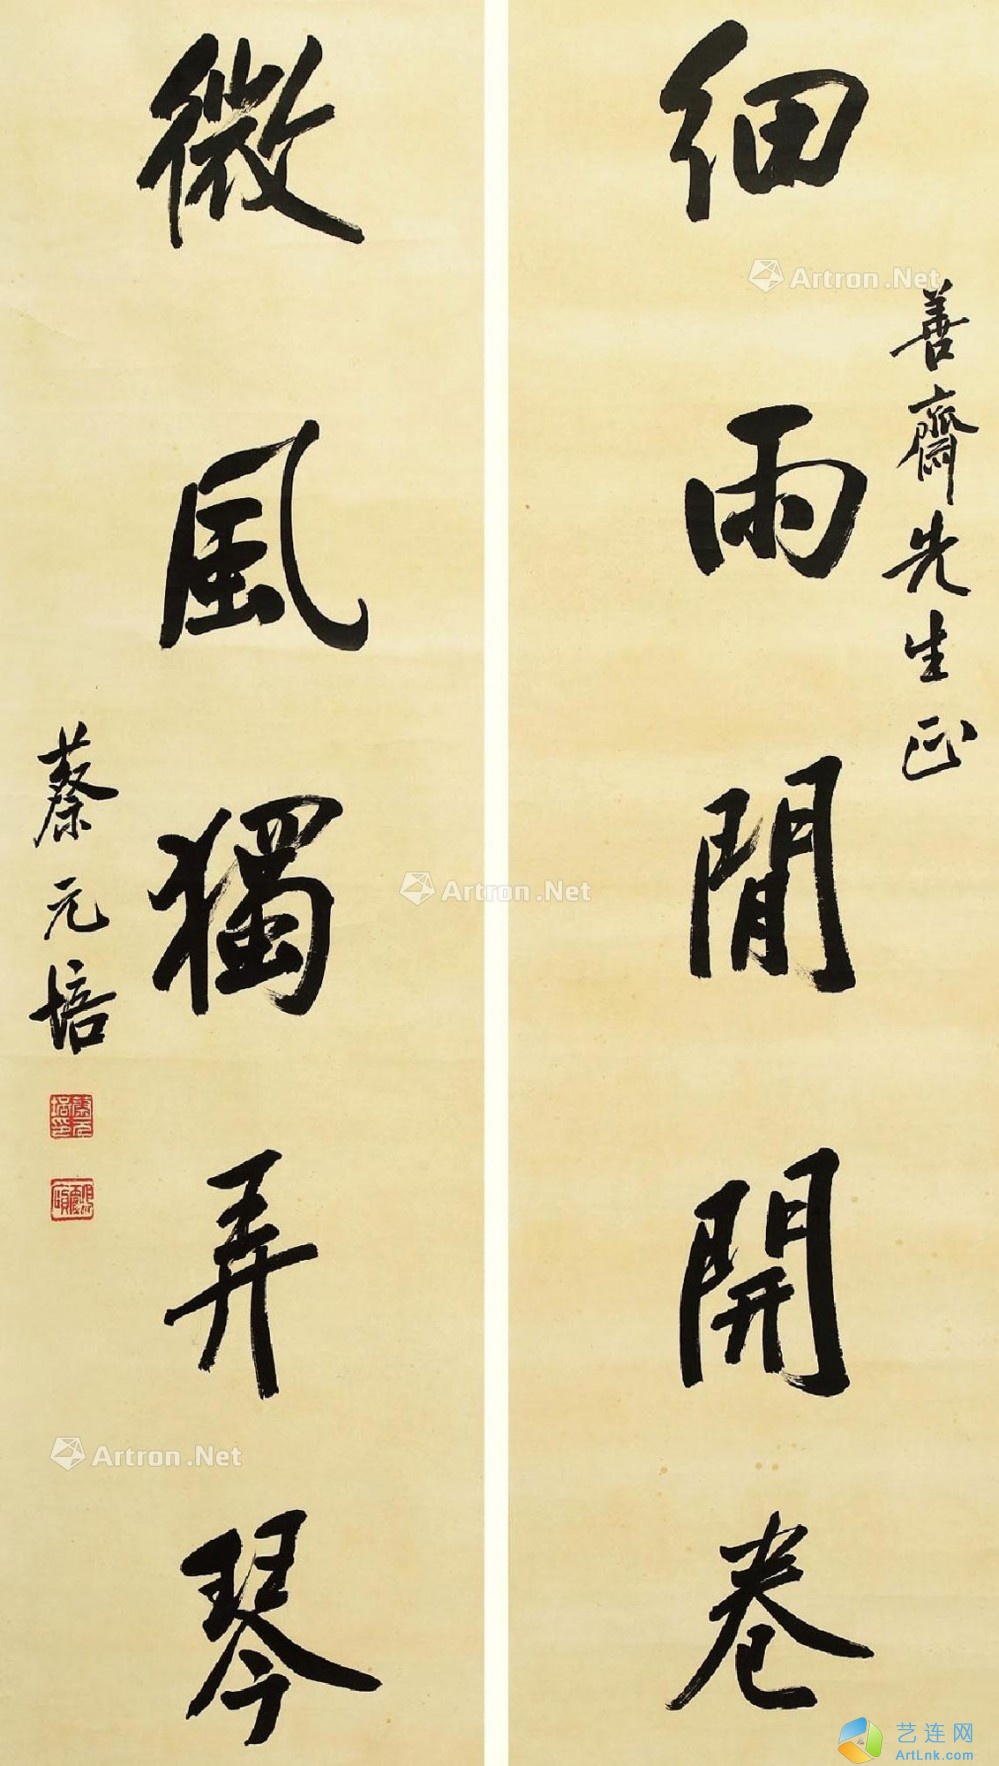 善齋先生正
細雨閒開卷
微風獨弄琴
蔡元培
Artron.Net
Artron.Net
Artron.Net
艺连网
ArtLnk.com